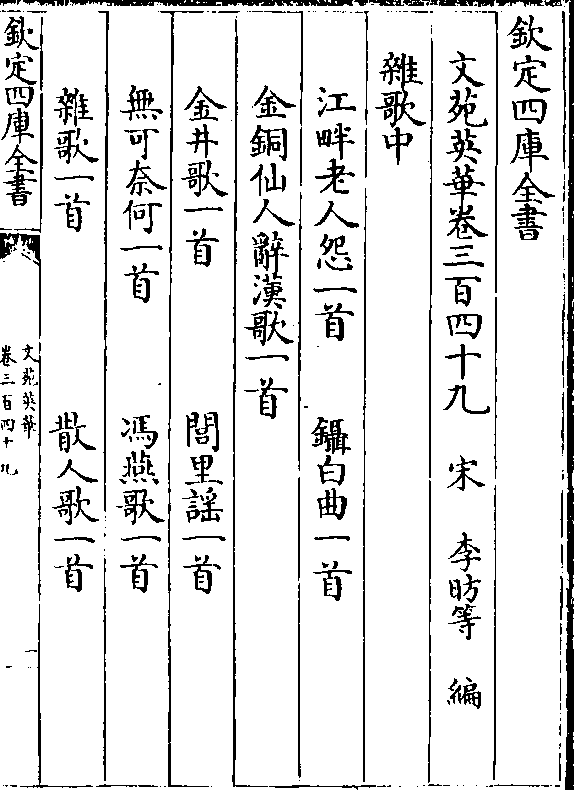 欽定四庫全書
文苑英華卷三百四十九 宋 李昉等 編
雜歌中
江畔老人怨一首 鑷白曲一首
金銅仙人辭漢歌一首
金井歌一首 閭里謡一首
無可奈何一首 馮燕歌一首
雜歌一首 散人歌一首
欽定四庫全書
文苑英華
卷三百四十九
一